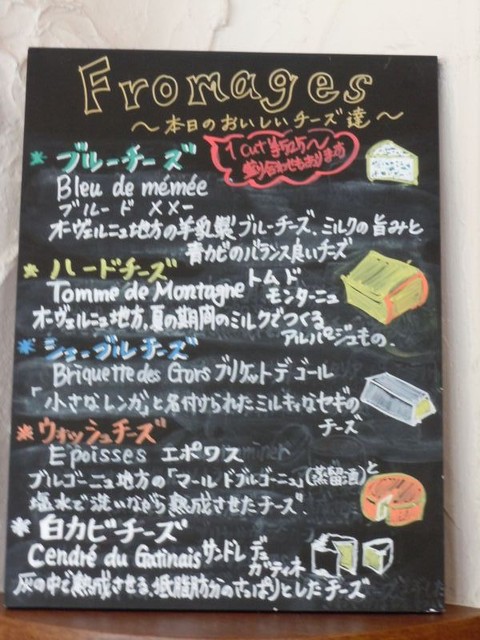 Fromages
～本日のおいしいチーズ達～
1cut ¥525～
盛り合わせもあります
＊ブルーチーズ
Bleu de mémée
ブルー ド メメー
オーヴェルニュ地方の羊乳製ブルーチーズ、ミルクの旨みと
青カビのバランス良いチーズ
＊ハードチーズ
Tomme de Montagne トム ド
モンターニュ
オーヴェルニュ地方、夏の期間のミルクでつくる
アルパージュもの.
＊シェーブルチーズ
Briquette des Gors ブリケット デ ゴール
「小さなレンガ」と名付けられたミルキィなヤギの
チーズ
＊ウォッシュチーズ
Epoisses エポワス
ブルゴーニュ地方の「マール ド ブルゴーニュ」(蒸留酒)と
塩水で洗いながら熟成させたチーズ.
＊白カビチーズ
Cendré du Gatinais サンドレ デュ
ガティネ
灰の中で熟成させる、低脂肪分のさっぱりとしたチーズ